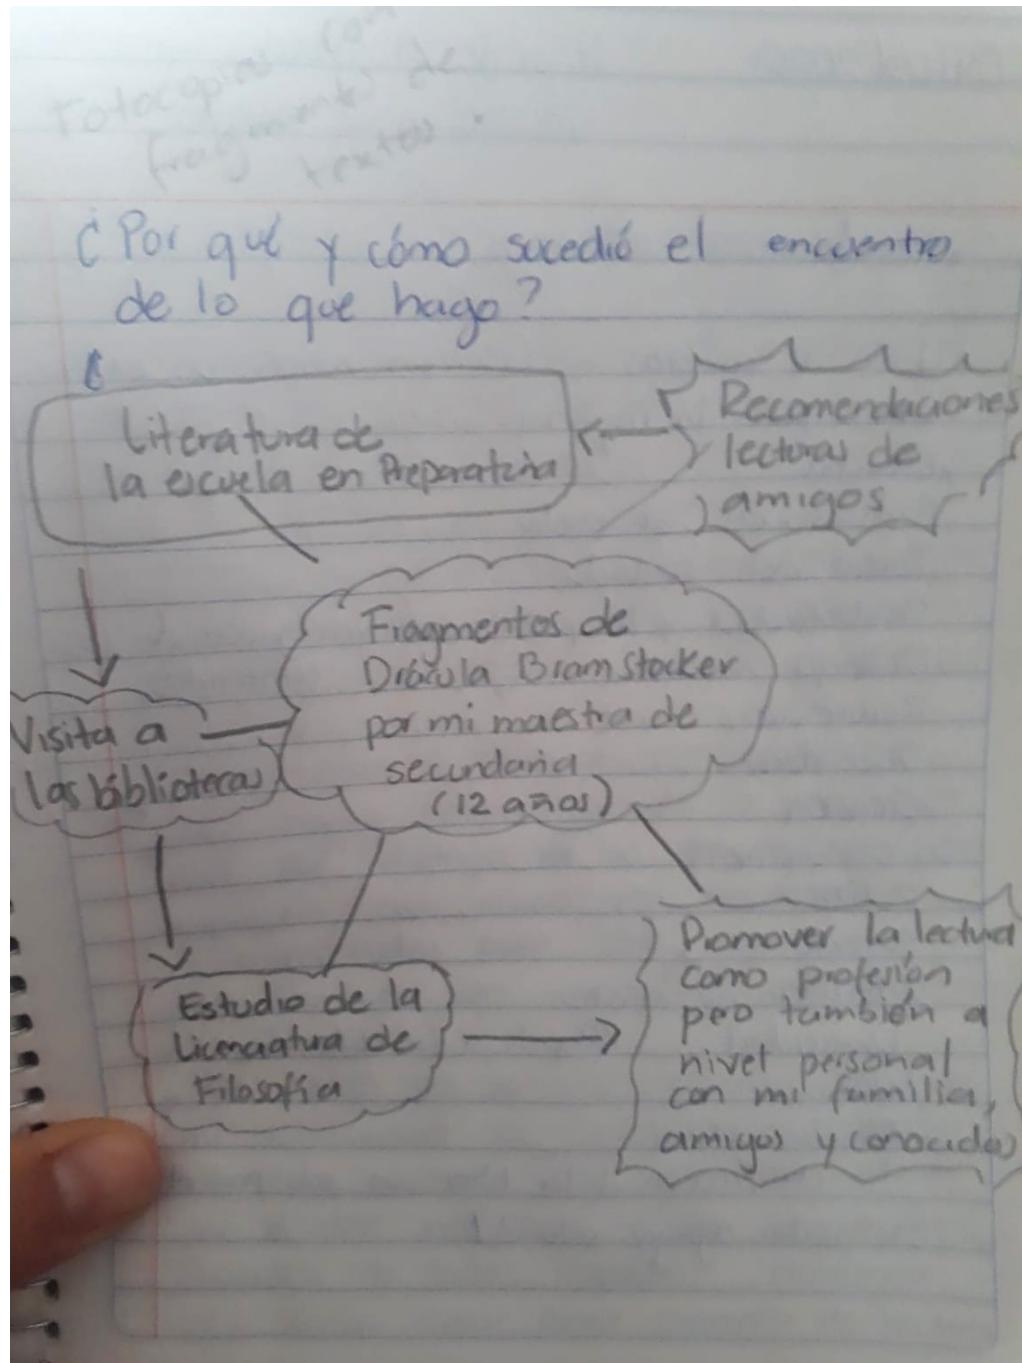 Fotocopias con
fragmentos de
textos.
¿Por qué y cómo sucedió el encuentro
de lo que hago?
Literatura de
la escuela en Preparatoria
Recomendaciones
lecturas de
amigos
Fragmentos de
Drácula Bram Stocker
por mi maestra de
secundaria
(12 años)
Visita a
las bibliotecas
Estudio de la
Licenciatura de
Filosofía
Promover la lectura
como profesión
pero también a
nivel personal
con mi familia,
amigos y conocidos